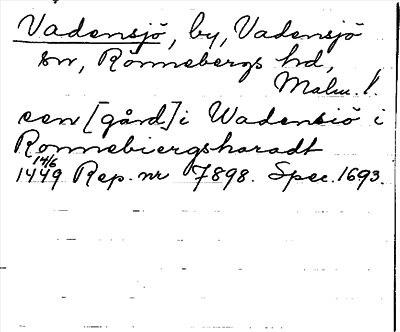 Vadensjö, by, Vadensjö
sn, Rönnebergs hd,
Malm. l.
een [gård] i Wadensiö i
Ronnebiergsharadt
14/6
1449 Rep. nr 7898. Spec. 1693.